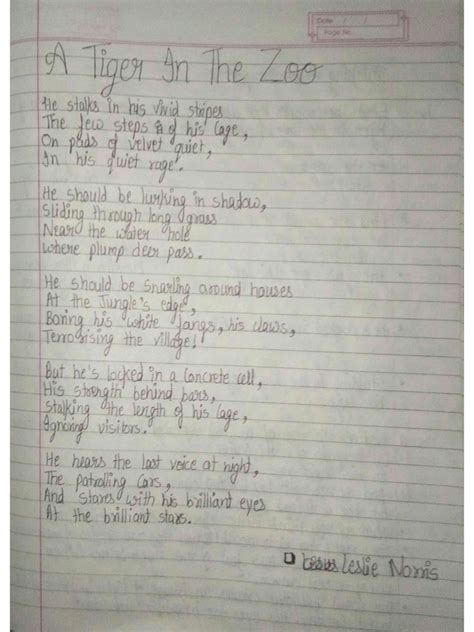 Date / /
Page No.
A Tiger In The Zoo
He stalks in his vivid stripes
The few steps of his cage,
On pads of velvet quiet,
In his quiet rage.
He should be lurking in shadow,
Sliding through long grass
Near the water hole
Where plump deer pass.
He should be snarling around houses
At the Jungle's edge,
Baring his white fangs, his claws,
Terrorising the village!
But he's locked in a Concrete cell,
His strength behind bars,
Stalking the length of his Cage,
Ignoring visitors.
He hears the last voice at night,
The patrolling Cars,
And stares with his brilliant eyes
At the brilliant stars.
Leslie Norris